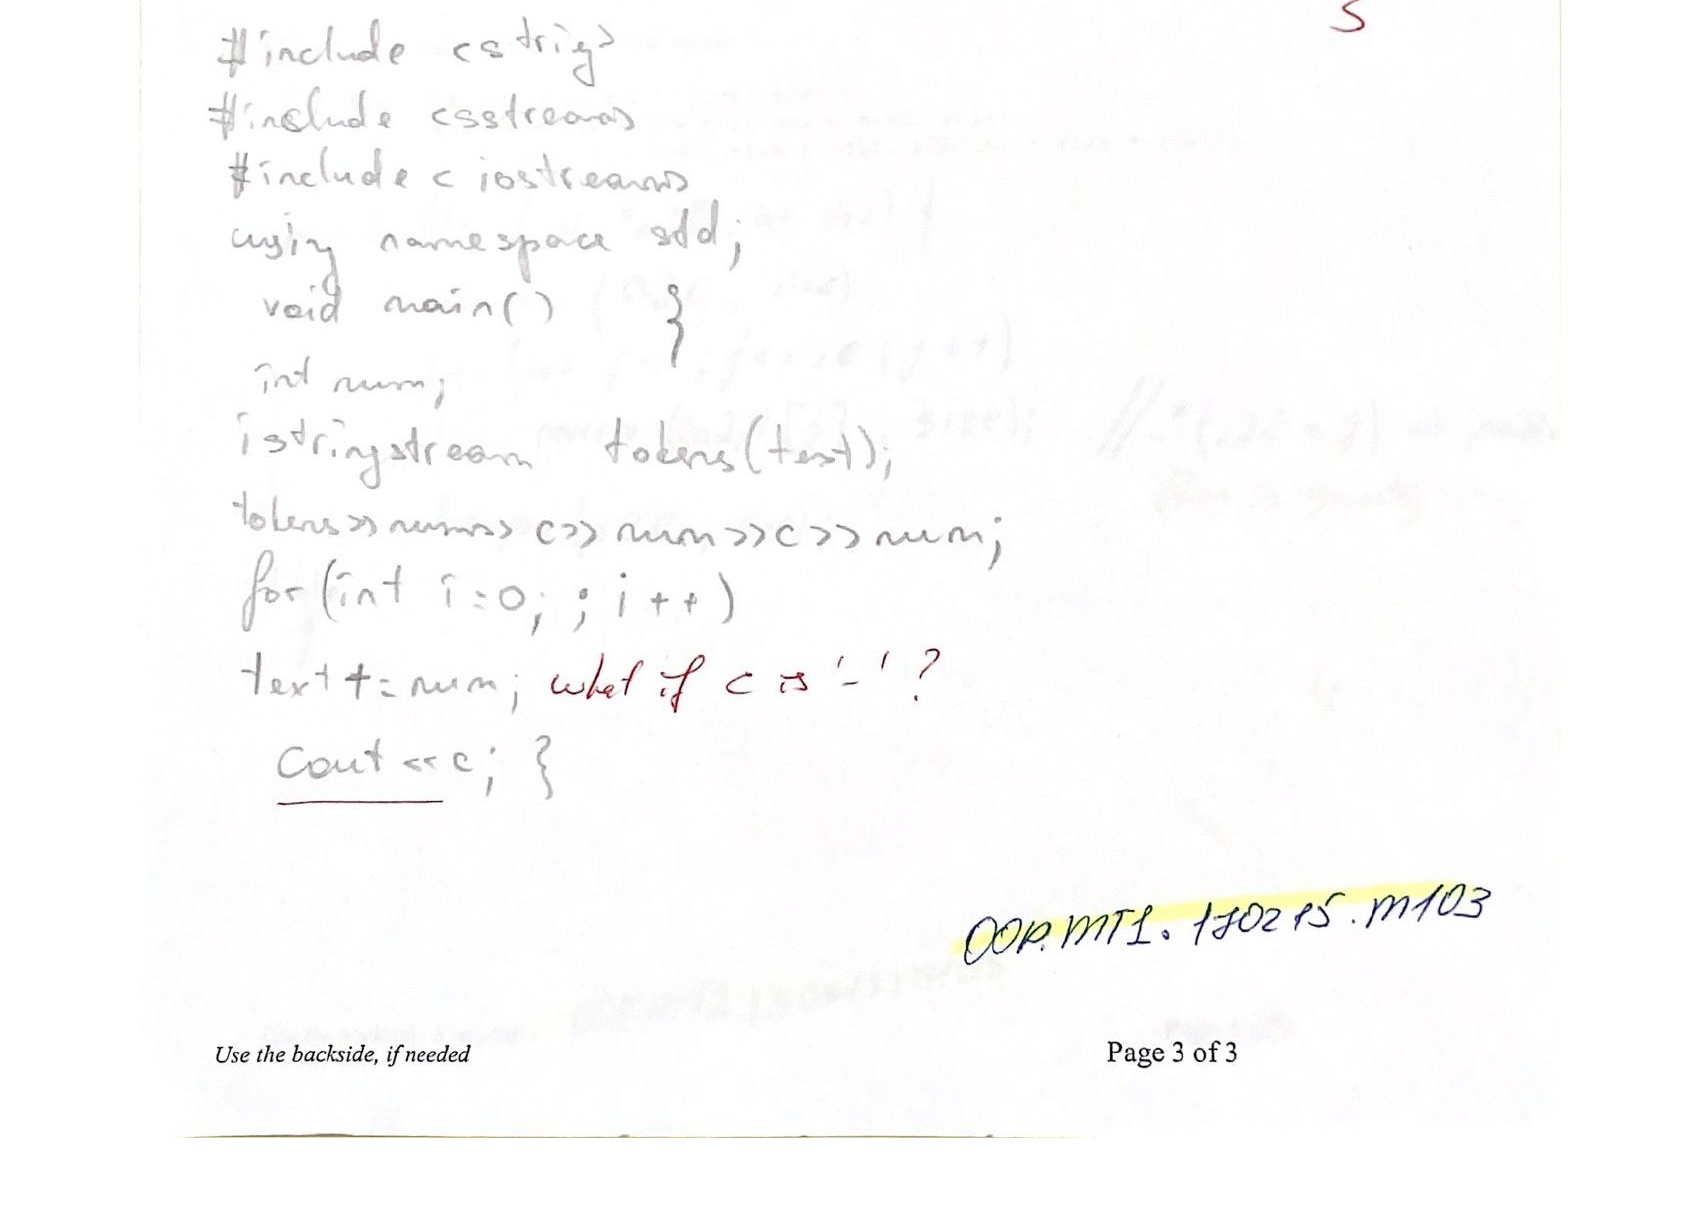 5
#include <strig>
#include <sstream>
#include < iostream>
using namespace std;
void main() }
int num;
istringstream tokens(text);
tokens>>num>> c>> num>>c>>num;
for(int i=0; ; i++)
text += num; what if c is '-' ?
cout << c; }
OOP.MT1.170215.M103
Use the backside, if needed
Page 3 of 3